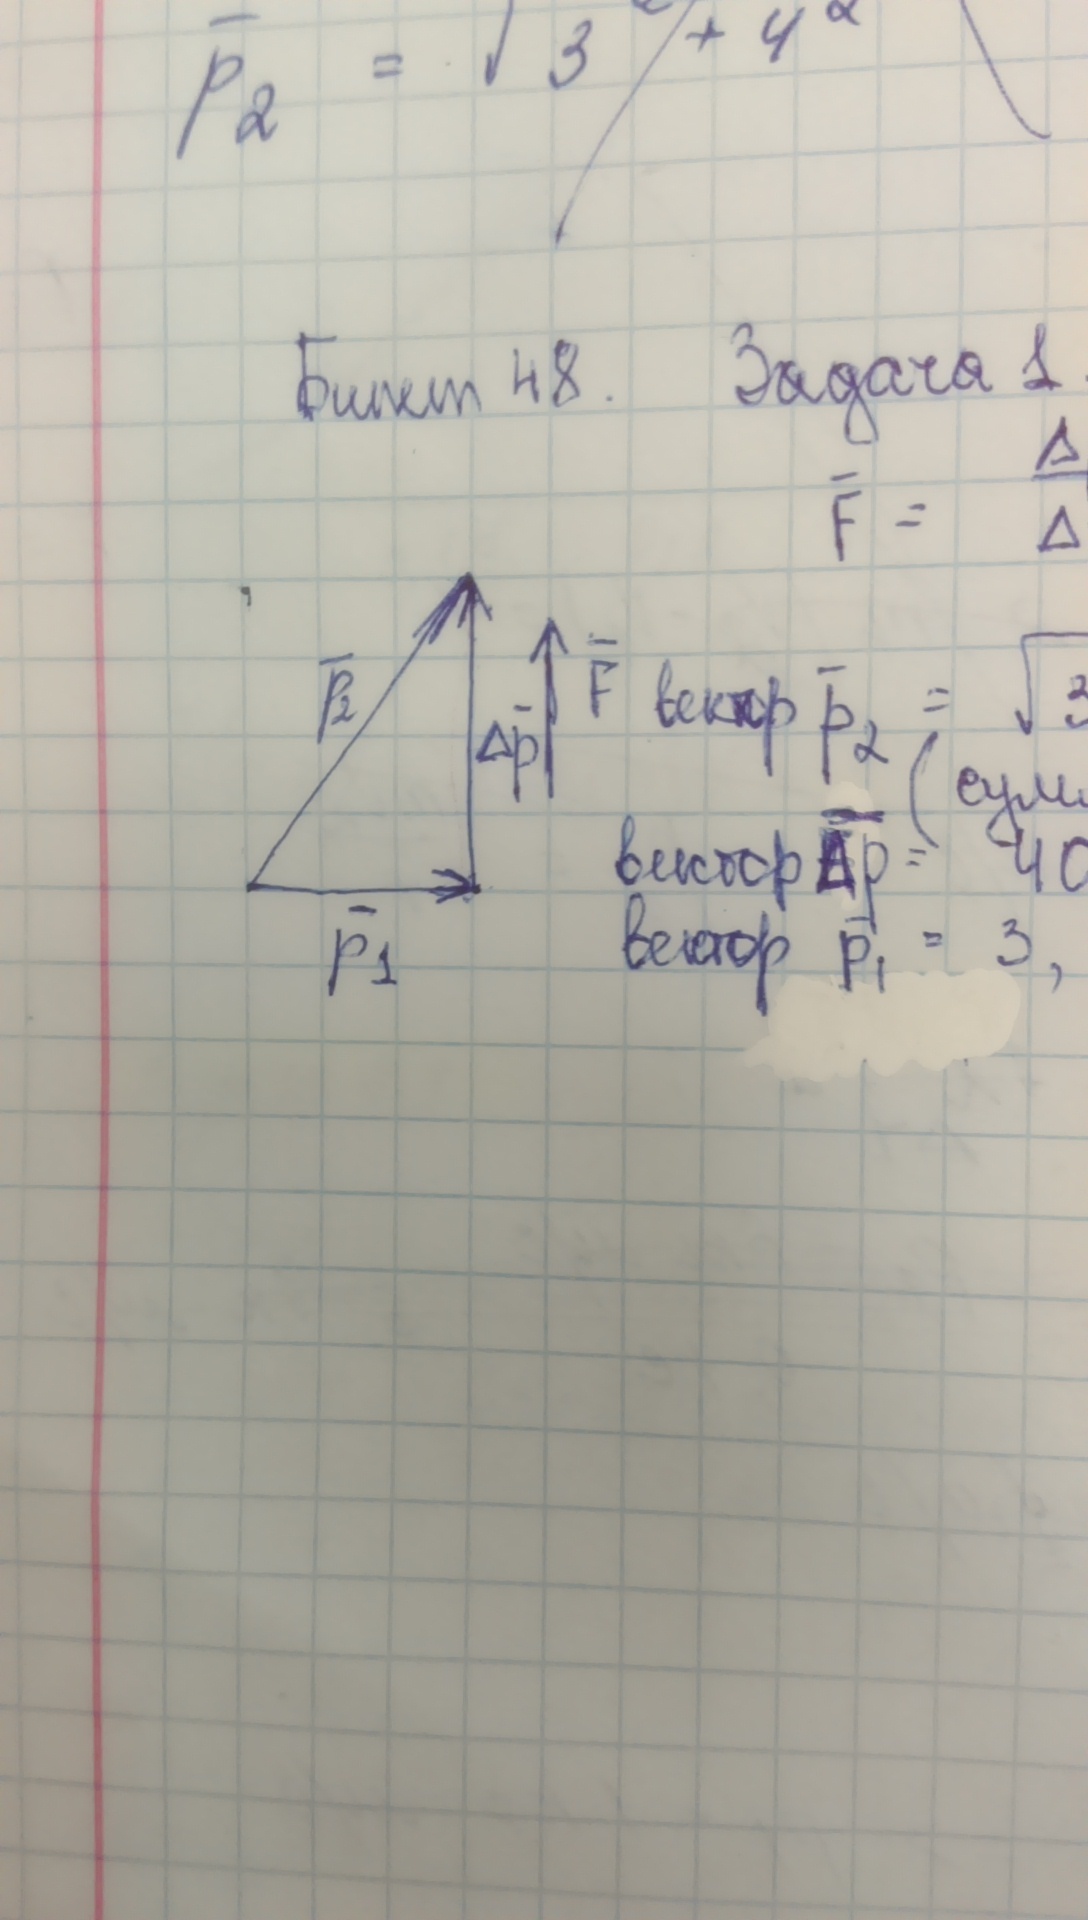 p̅₂ = √3² + 4²
Билет 48. Задача 1.
F̅ = Δ
Δ
p̅₂
Δp̅
F̅
p̅1
вектор p̅₂ = √3
(сумм
вектор Δp̅ = 40
вектор p̅₁ = 3,